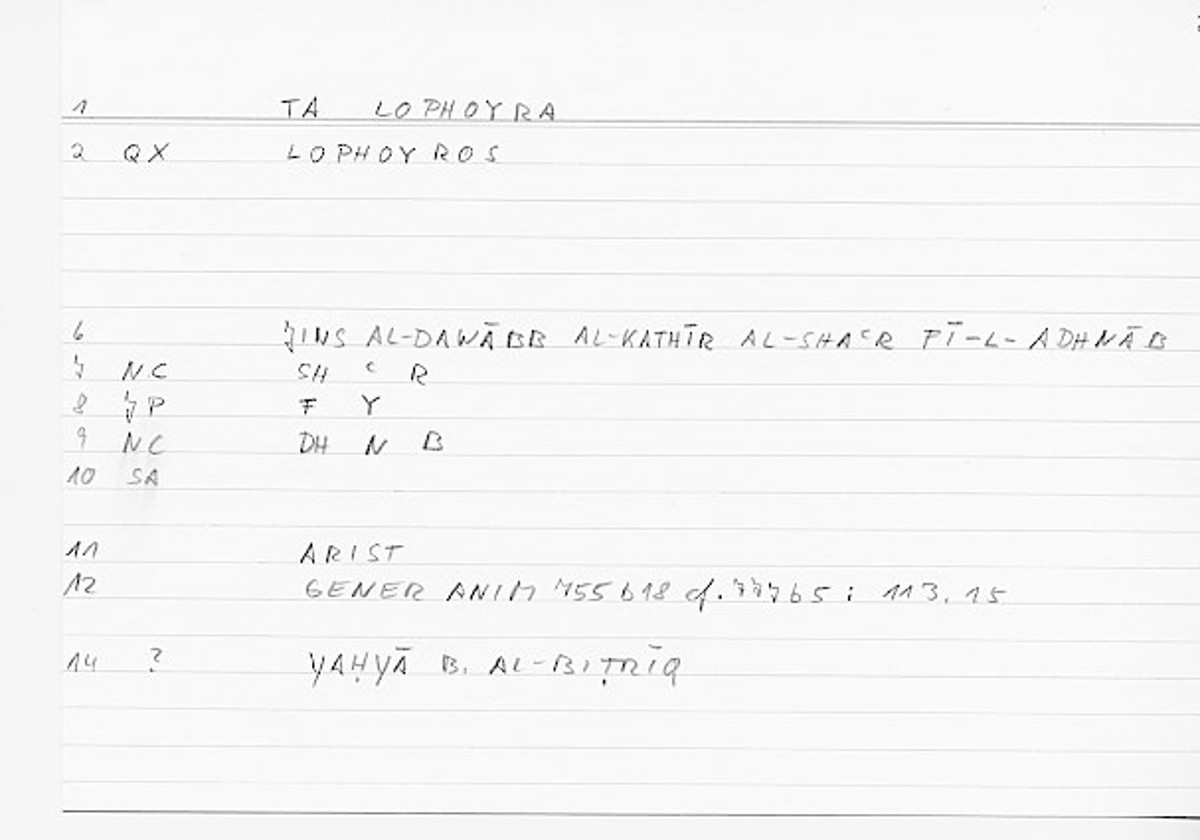 1 TA LOPHOYRA
2 QX LOPHOYROS
6 JINS AL-DAWĀBB AL-KATHĪR AL-SHAᶜR FĪ-L-ADHNĀB
7 NC SH ᶜ R
8 JP F Y
9 NC DH N B
10 SA
11 ARIST
12 GENER ANIM 755b18 cf. 777b5; 113.15
14 ? YAḤYĀ B. AL-BIṬRĪQ